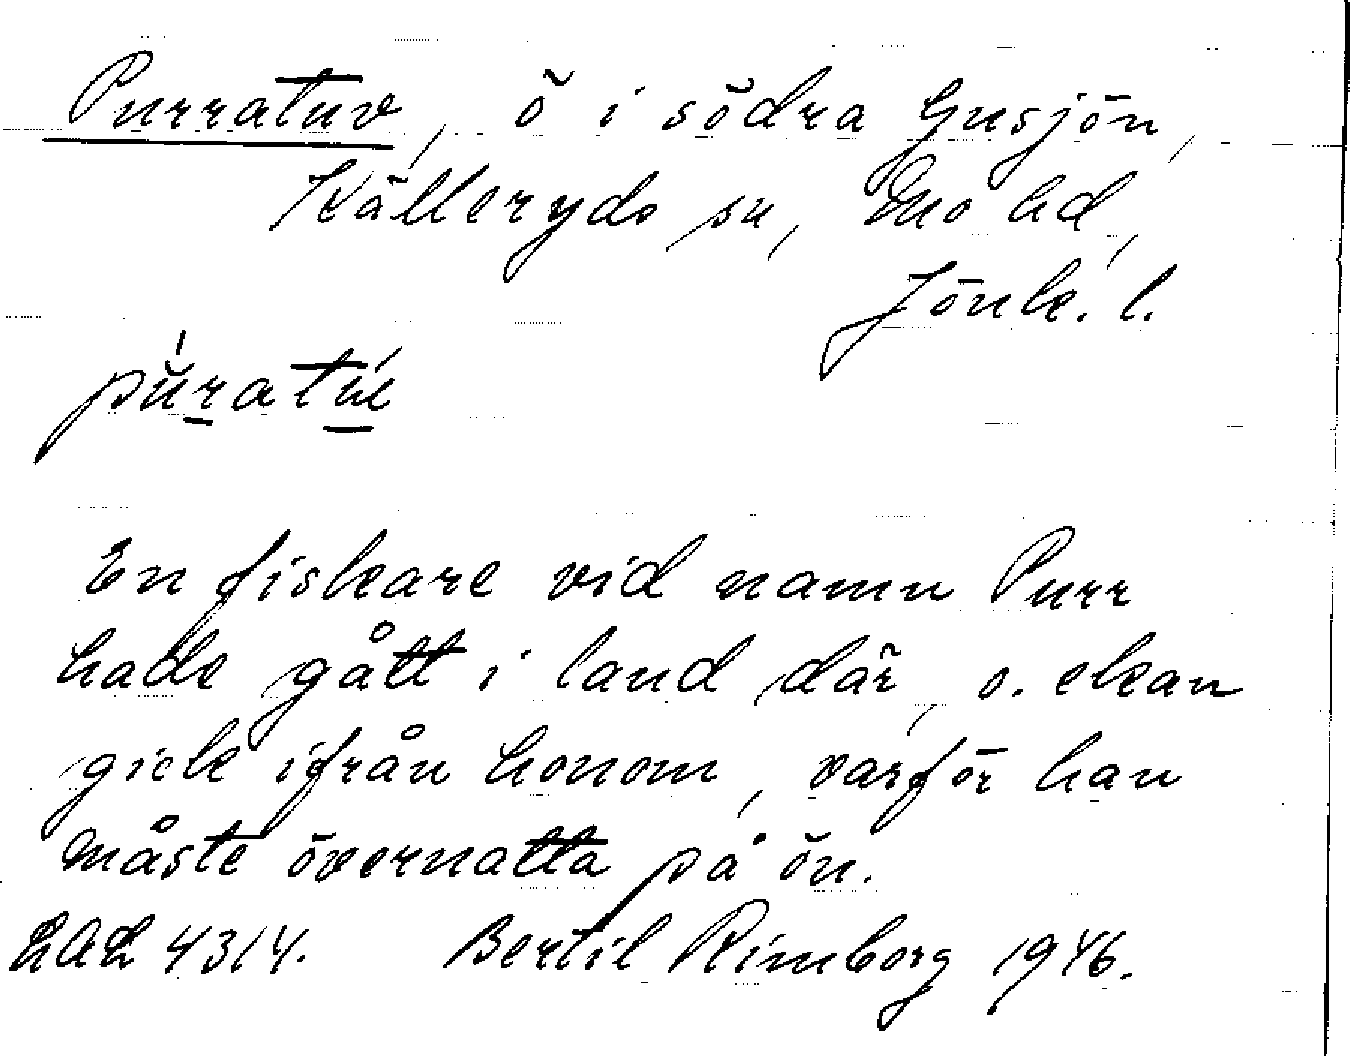 Purratuv, ö i södra Gusjön,
Källeryds sn, Mo hd,
Jönk. l.
En fiskare vid namn Purr
hade gått i land där, o. ekan
gick ifrån honom, varför han
måste övernatta på ön.
LAL 4314. Bertil Rimborg 1946.